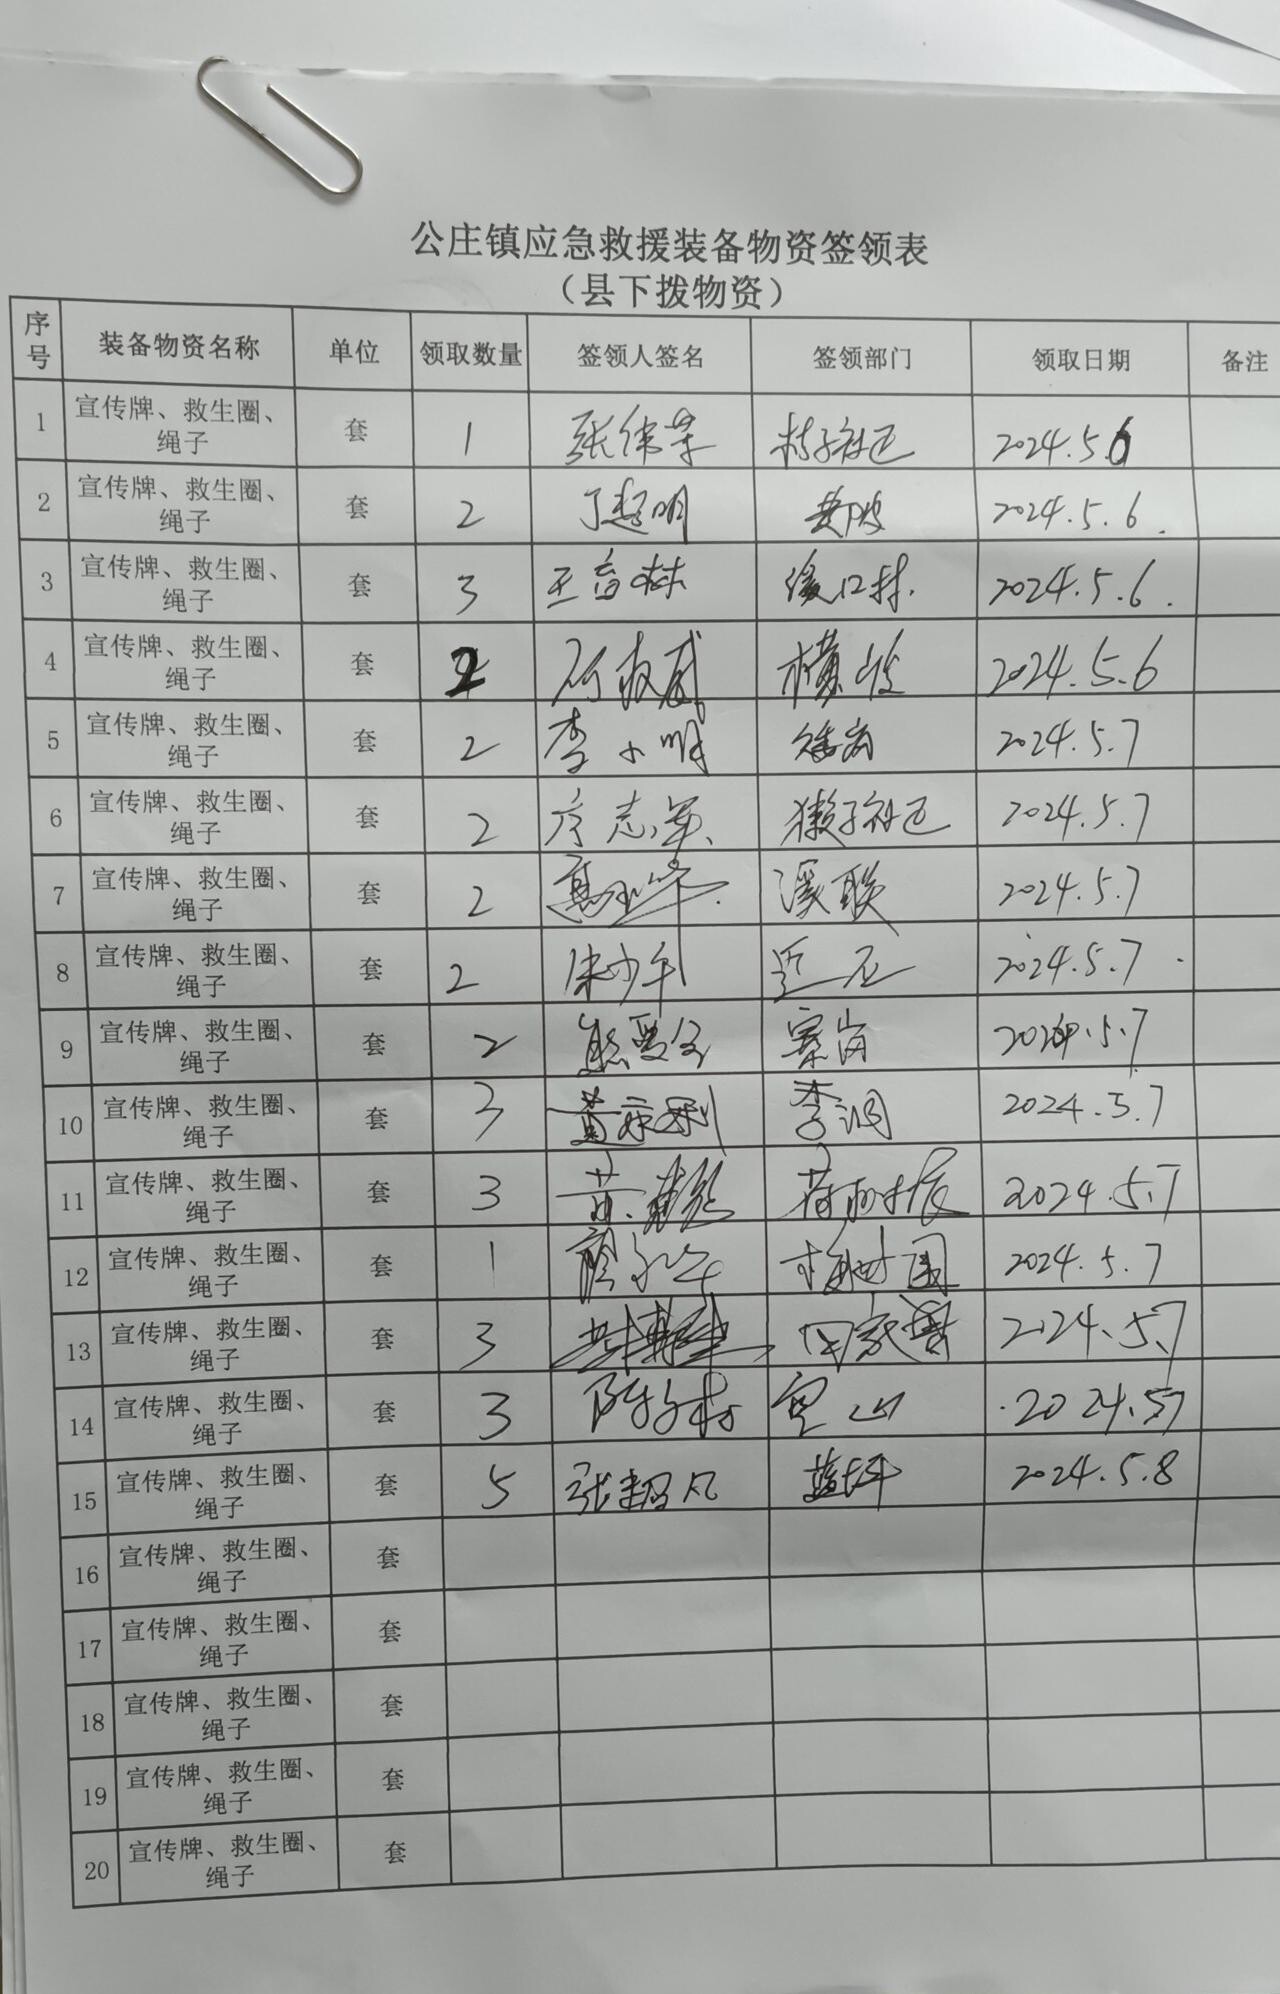 公庄镇应急救援装备物资签领表
（县下拨物资）
序号 装备物资名称 单位 领取数量 签领人签名 签领部门 领取日期 备注
1 宣传牌、救生圈、绳子 套 1 2024.5.6
2 宣传牌、救生圈、绳子 套 2 2024.5.6.
3 宣传牌、救生圈、绳子 套 3 2024.5.6.
4 宣传牌、救生圈、绳子 套 2024.5.6
5 宣传牌、救生圈、绳子 套 2 李小明 2024.5.7
6 宣传牌、救生圈、绳子 套 2 獭子社区 2024.5.7
7 宣传牌、救生圈、绳子 套 2 溪联 2024.5.7
8 宣传牌、救生圈、绳子 套 2 2024.5.7
9 宣传牌、救生圈、绳子 套 2 寨岗 2024.5.7
10 宣传牌、救生圈、绳子 套 3 李洞 2024.5.7
11 宣传牌、救生圈、绳子 套 3 2024.5.7
12 宣传牌、救生圈、绳子 套 1 2024.5.7
13 宣传牌、救生圈、绳子 套 3 2024.5.7
14 宣传牌、救生圈、绳子 套 3 2024.5.7
15 宣传牌、救生圈、绳子 套 5 蓝坪 2024.5.8
16 宣传牌、救生圈、绳子 套
17 宣传牌、救生圈、绳子 套
18 宣传牌、救生圈、绳子 套
19 宣传牌、救生圈、绳子 套
20 宣传牌、救生圈、绳子 套